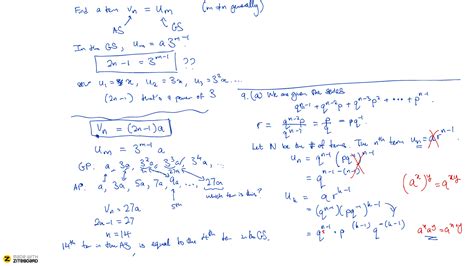 Find a term vn = um (m≠n generally)
AS GS
In the GS, um = a 3^m-1
2n-1 = 3^m-1 ??
u1 = x, u2 = 3x, u3 = 3²x ...
(2n-1) that's a power of 3
Vn = (2n-1)a
um = 3^m-1 a
GP: a, 3a, 3²a, 3³a, 3⁴a, ...
9a 27a
AP: a, 3a, 5a, 7a, 9a, ... 27a
5th
which term is this?
Vn = 27a
2n-1 = 27
n = 14
14th term in the AS is equal to the 4th term in the GS.
9.(a) We are given the series
q^n-1 + q^n-2 p + q^n-3 p² + ... + p^n-1
r = q^n-2 p / q^n-1 = p/q = pq^-1
Let N be the # of terms. The nth term un = ar^n-1
un = q^n-1 (pq^-1)^n-1
= q^-1(n-1)
(a^x)^y = a^xy
uk = a r^k-1
= (q^n-1)(pq^-1)^k-1
= q^n-1 · p^(k-1) q^-(k-1)
a^x a^y = a^x+y
MADE WITH
ZITEBOARD